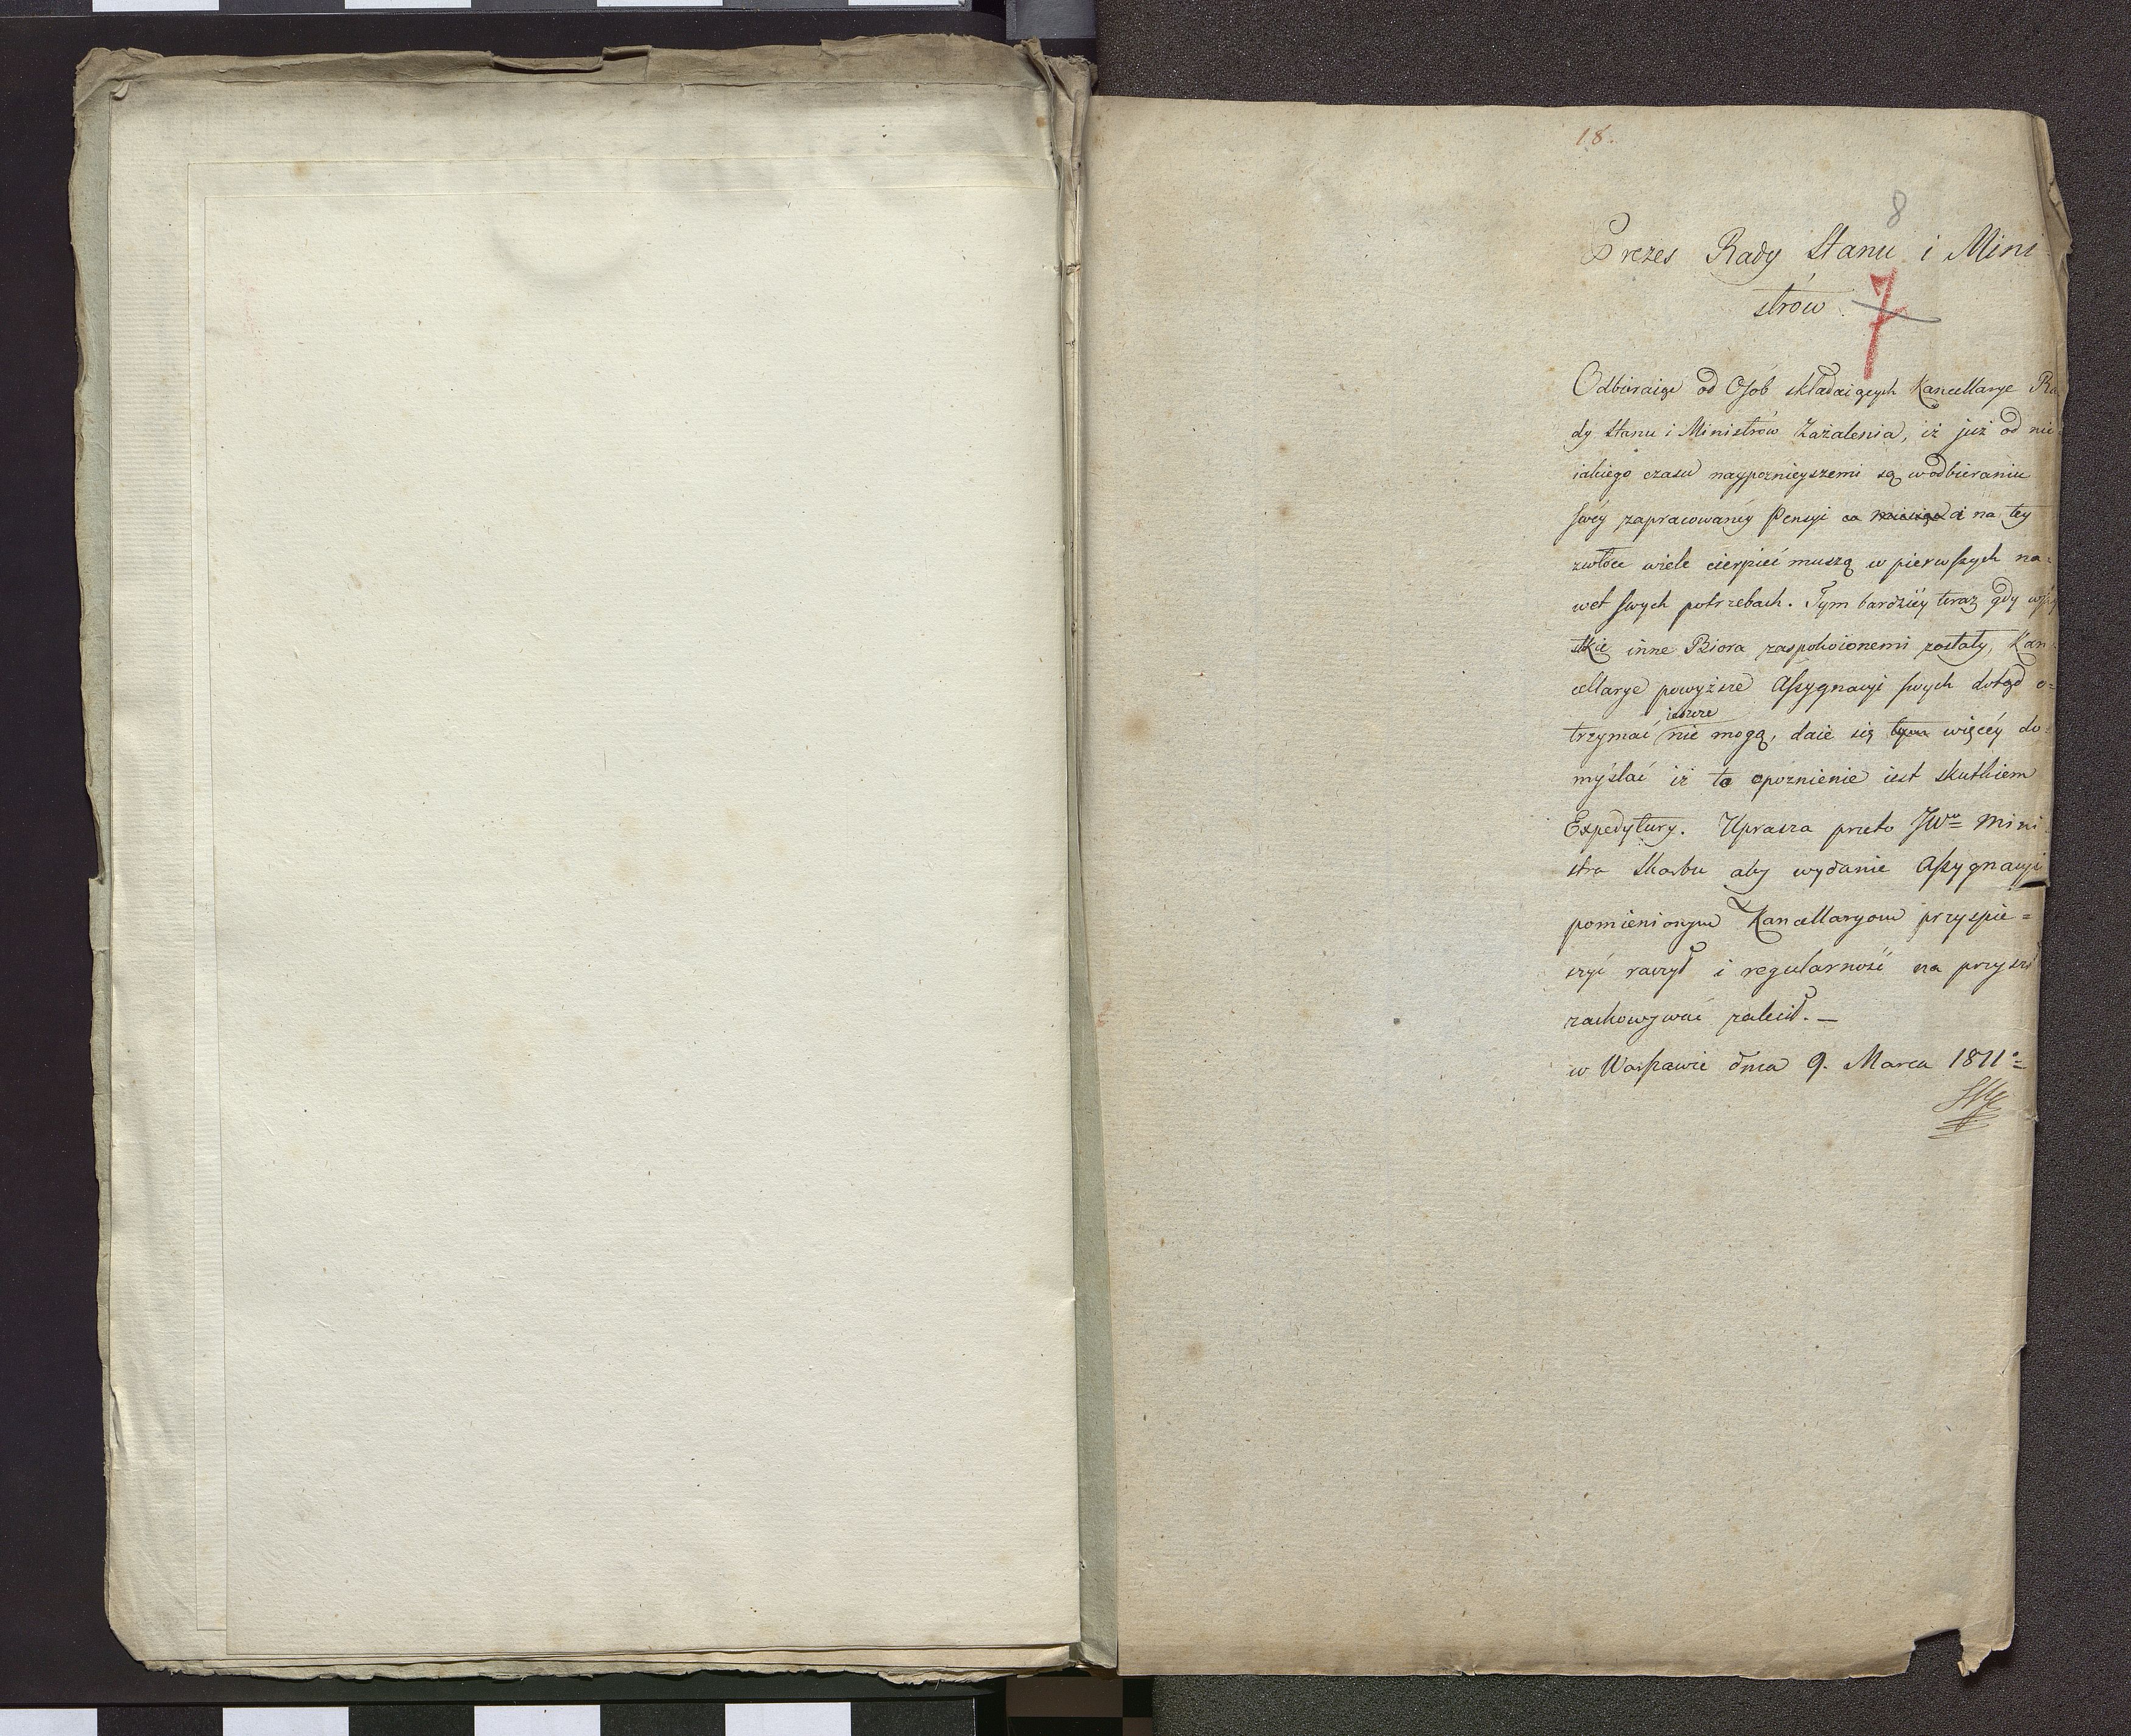 18.
8
Prezes Rady Stanu i Mini
strów.
7
Odbieraiąc od Osób składaiących Kancellarye Ra
dy Stanu i Ministrów Zażalenia, iż już od nie
iakiego czasu naypoznieyszemi są w odbieraniu
swéy zapracowanéy Pensyi co miesiąc i na tey
zwłoce wiele cierpieć muszą w pierwszych na=
wet swych potrzebach. Tym bardziéy teraz gdy wszy
stkie inne Biora zaspokoionemi zostały, Kan
cellarye powyższe Assygnacyi swych dotąd o=
ieszcze
trzymać nie mogą, daie się tym więcéy do=
myślać iż to opoznienie iest skutkiem
Expedytury. Uprasza przeto JWo Mini
stra Skarbu aby wydanie Assygnacyi
pomienionym Kancellaryom przyspie=
szyć raczył i regularność na przysz
zachowywać zalecił. —
w Warszawie dnia 9. Marca 1811o